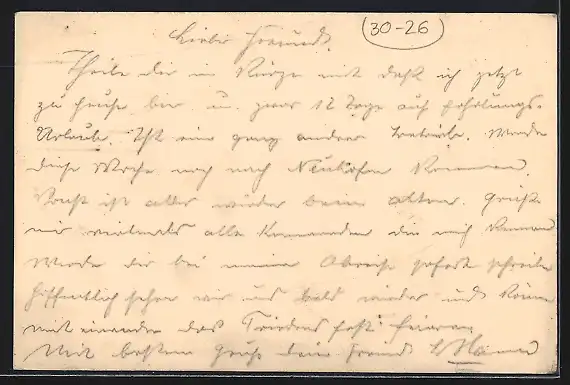 30-26
Lieber Freund.
Theile dir in Kürze mit daß ich jetzt
zu Hause bin u. zwar 12 Tage auf Erholungs-
Urlaub. Ist ein ganz anderes. Werde
diese Woche noch nach Neuhofen kommen.
Sonst ist alles wieder beim alten. Grüße
mir vielmals alle Kameraden die mich kennen
Werde dir bei meiner Abreise sofort schreiben
Hoffentlich sehen wir uns bald wieder und können
miteinander das Friedensfest feiern
Mit besten Grüße dein Freund